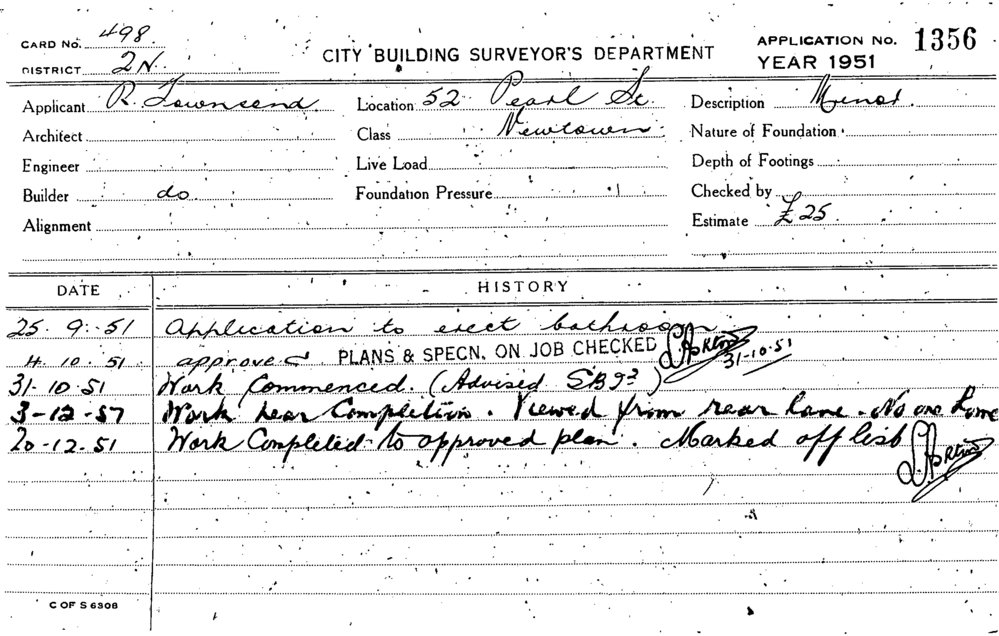 CARD No. 498.
DISTRICT 2N.
CITY BUILDING SURVEYOR'S DEPARTMENT
APPLICATION No. 1356
YEAR 1951
Applicant R. Townsend Location 52 Pearl St. Description Minor.
Architect Class Newtown. Nature of Foundation
Engineer Live Load Depth of Footings
Builder do Foundation Pressure Checked by
Alignment Estimate £25.
DATE HISTORY
25. 9. 51 Application to erect bathroom
4. 10. 51 approved PLANS & SPECN. ON JOB CHECKED 31-10-51
31-10-51 Work Commenced. (Advised SB93)
3-12-57 Work near Completion. Viewed from rear lane. No one home
20-12.51 Work Completed to approved plan. Marked off list
C OF S 6308